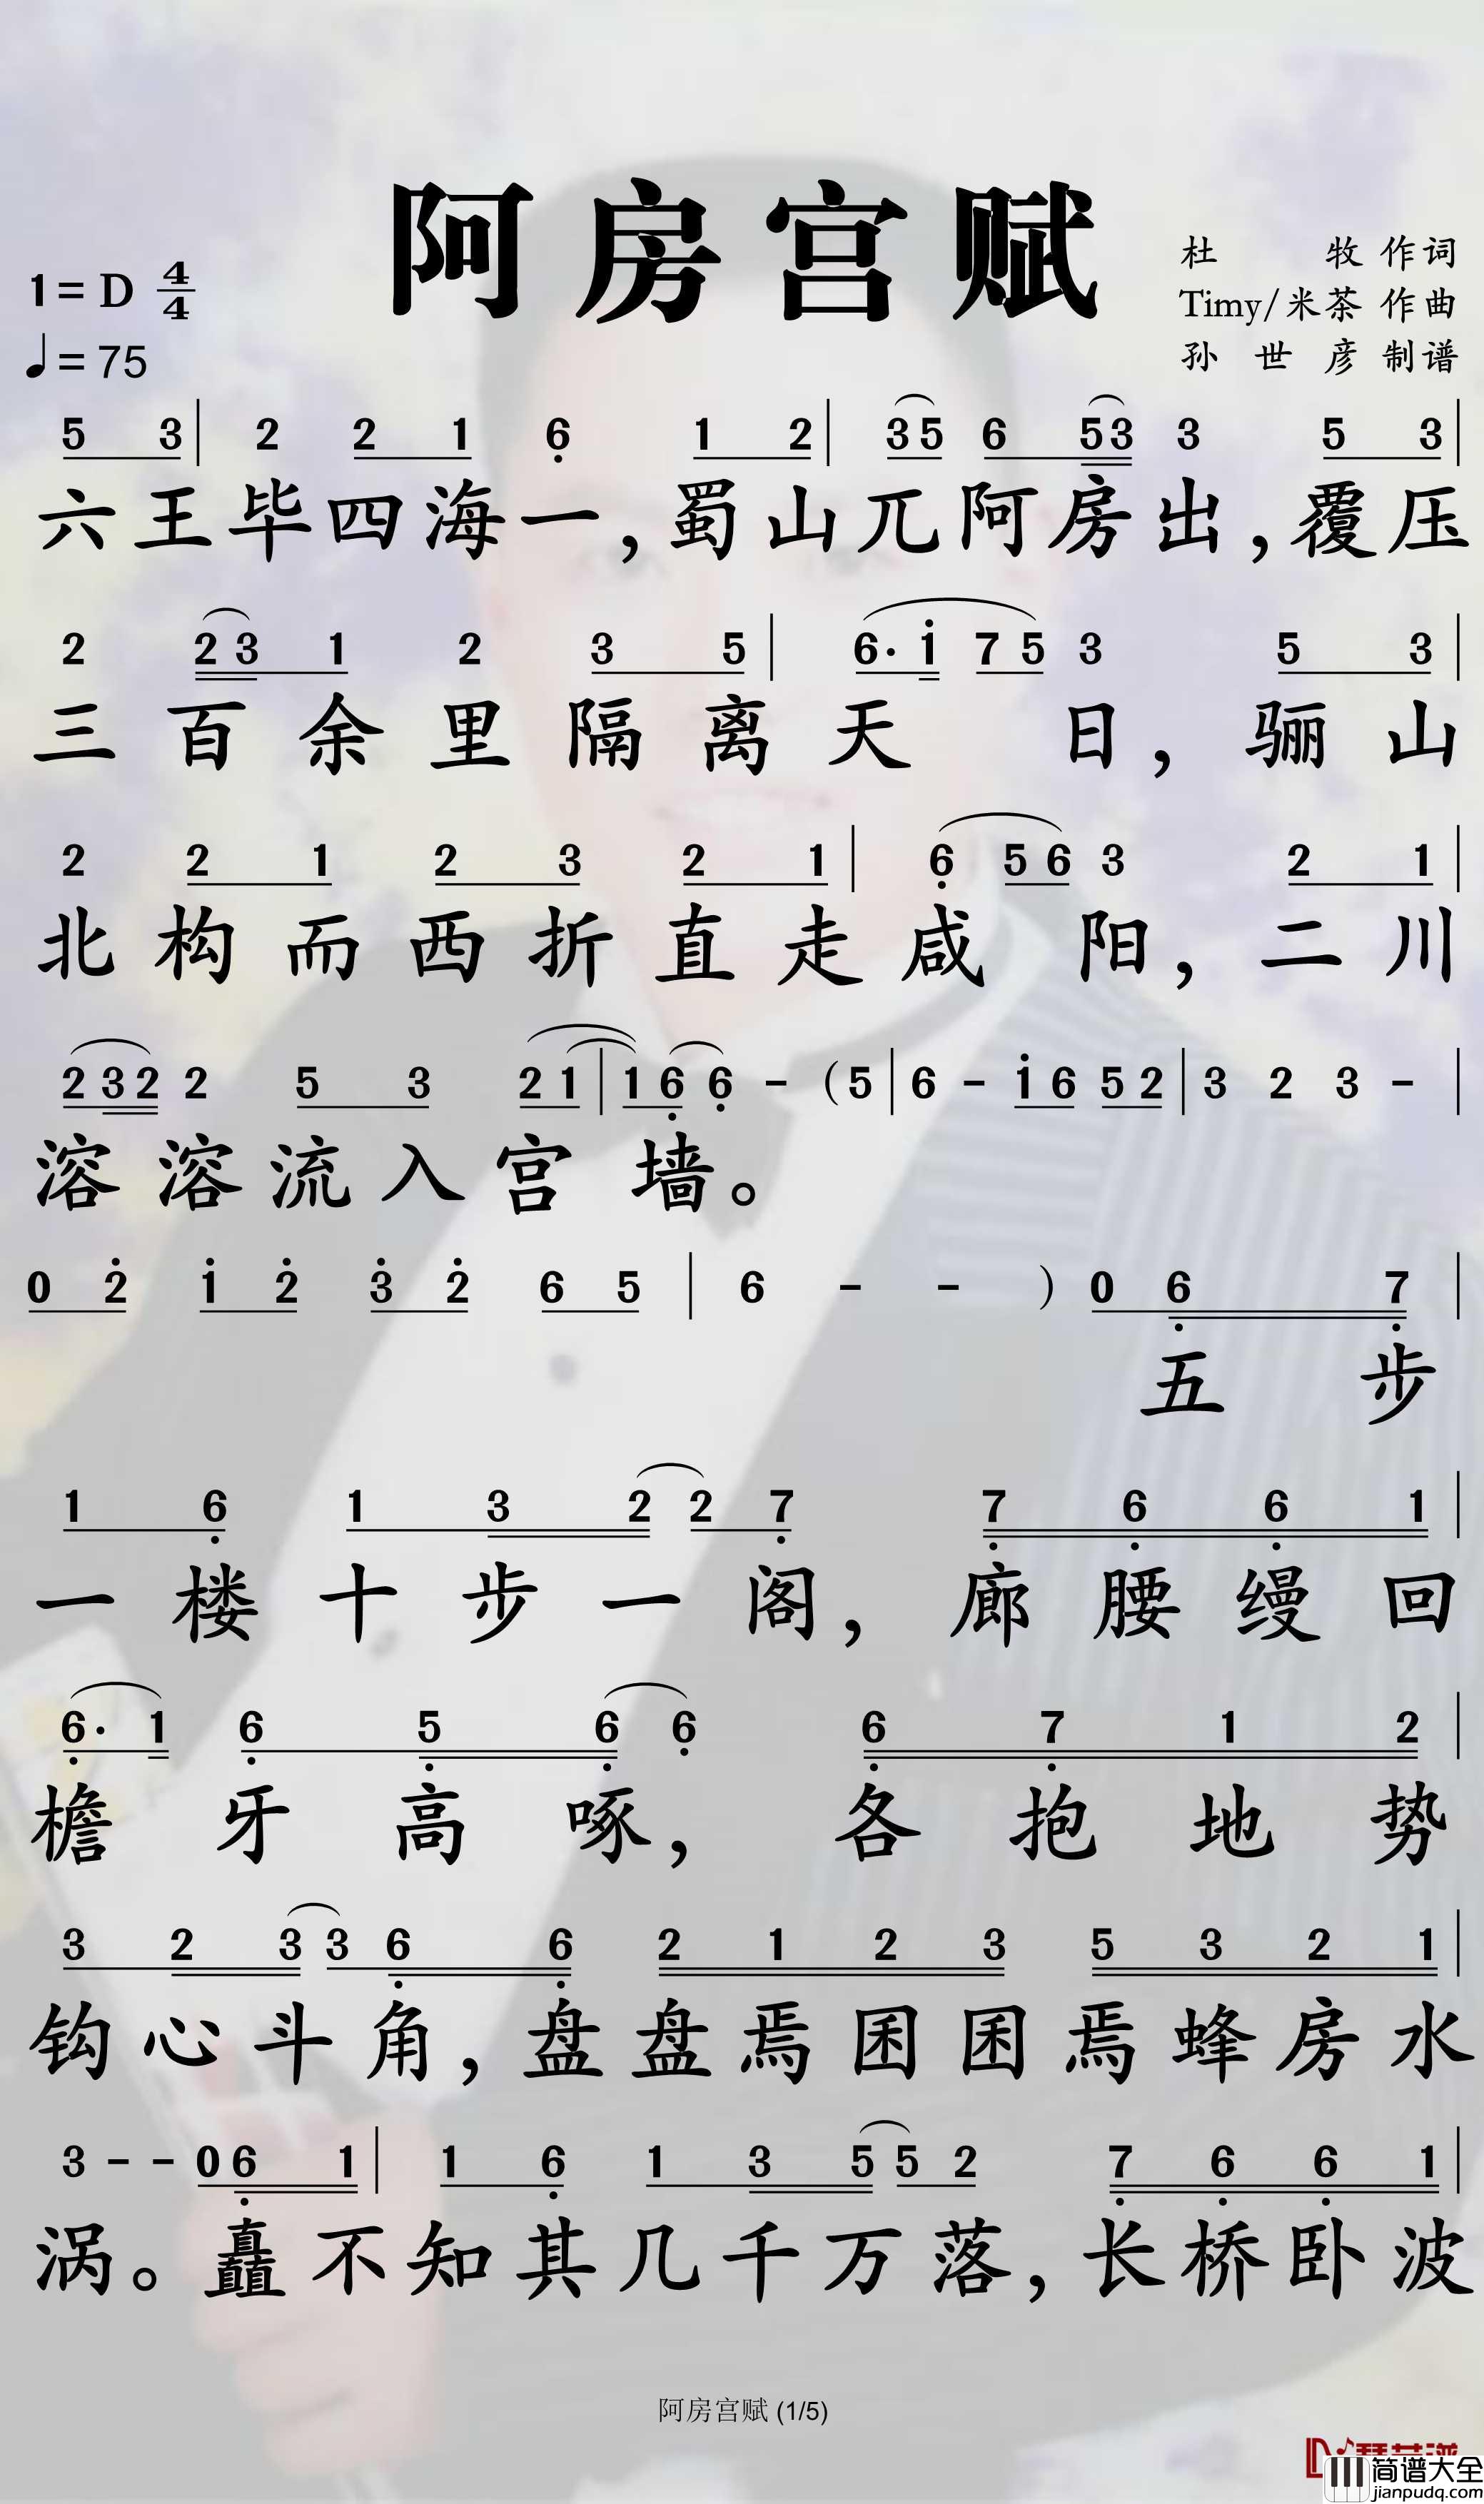 阿房宫赋
1=D 4/4
♩=75
杜牧 作词
Timy/米茶 作曲
孙世彦 制谱
5 3 | 2 2 1 6 1 2 | 3 5 6 5 3 3 5 3 |
六王毕四海一,蜀山兀阿房出,覆压
2 2 3 1 2 3 5 | 6· i 7 5 3 5 3 |
三百余里隔离天日,骊山
2 2 1 2 3 2 1 | 6 5 6 3 2 1 |
北构而西折直走咸阳,二川
2 3 2 2 5 3 2 1 | 1 6 6 - (5 | 6 - i 6 5 2 | 3 2 3 - |
溶溶流入宫墙。
0 2 1 2 3 2 6 5 | 6 - - ) 0 6 7 |
五步
1 6 1 3 2 2 7 7 6 6 1 |
一楼十步一阁,廊腰缦回
6· 1 6 5 6 6 6 7 1 2 |
檐牙高啄,各抱地势
3 2 3 3 6 6 2 1 2 3 5 3 2 1 |
钩心斗角,盘盘焉囷囷焉蜂房水
3 - - 0 6 1 | 1 6 1 3 5 5 2 7 6 6 1 |
涡。矗不知其几千万落,长桥卧波
阿房宫赋 (1/5)
简谱大全
jianpudq.com